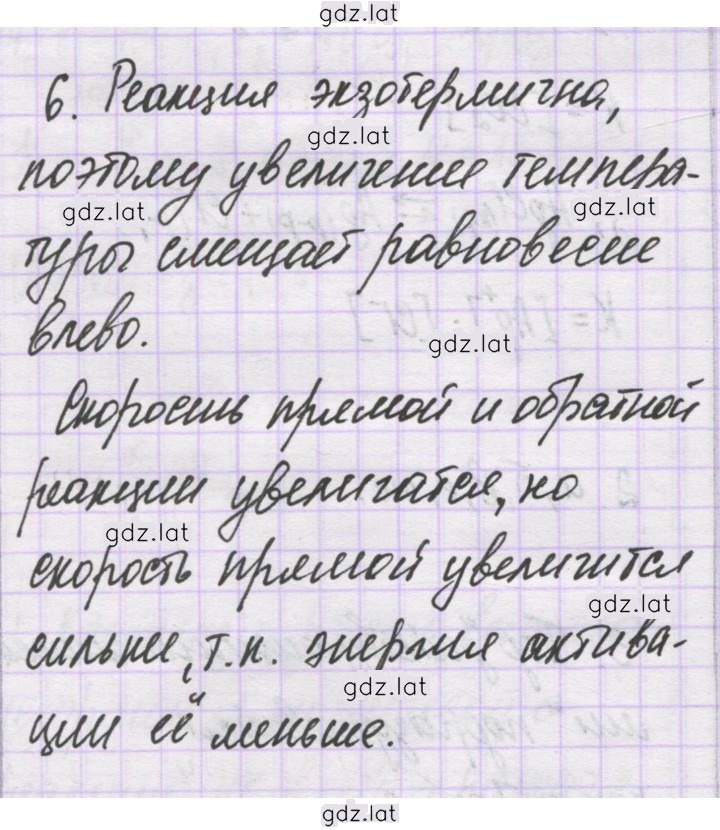 gdz.lat
6. Реакция экзотермична,
gdz.lat
поэтому увеличение темпера-
gdz.lat gdz.lat
туры смещает равновесие
влево.
gdz.lat
Скорость прямой и обратной
реакции увеличатся, но
gdz.lat
скорость прямой увеличится
gdz.lat
сильнее, т.к. энергия актива-
gdz.lat
ции её меньше.
gdz.lat